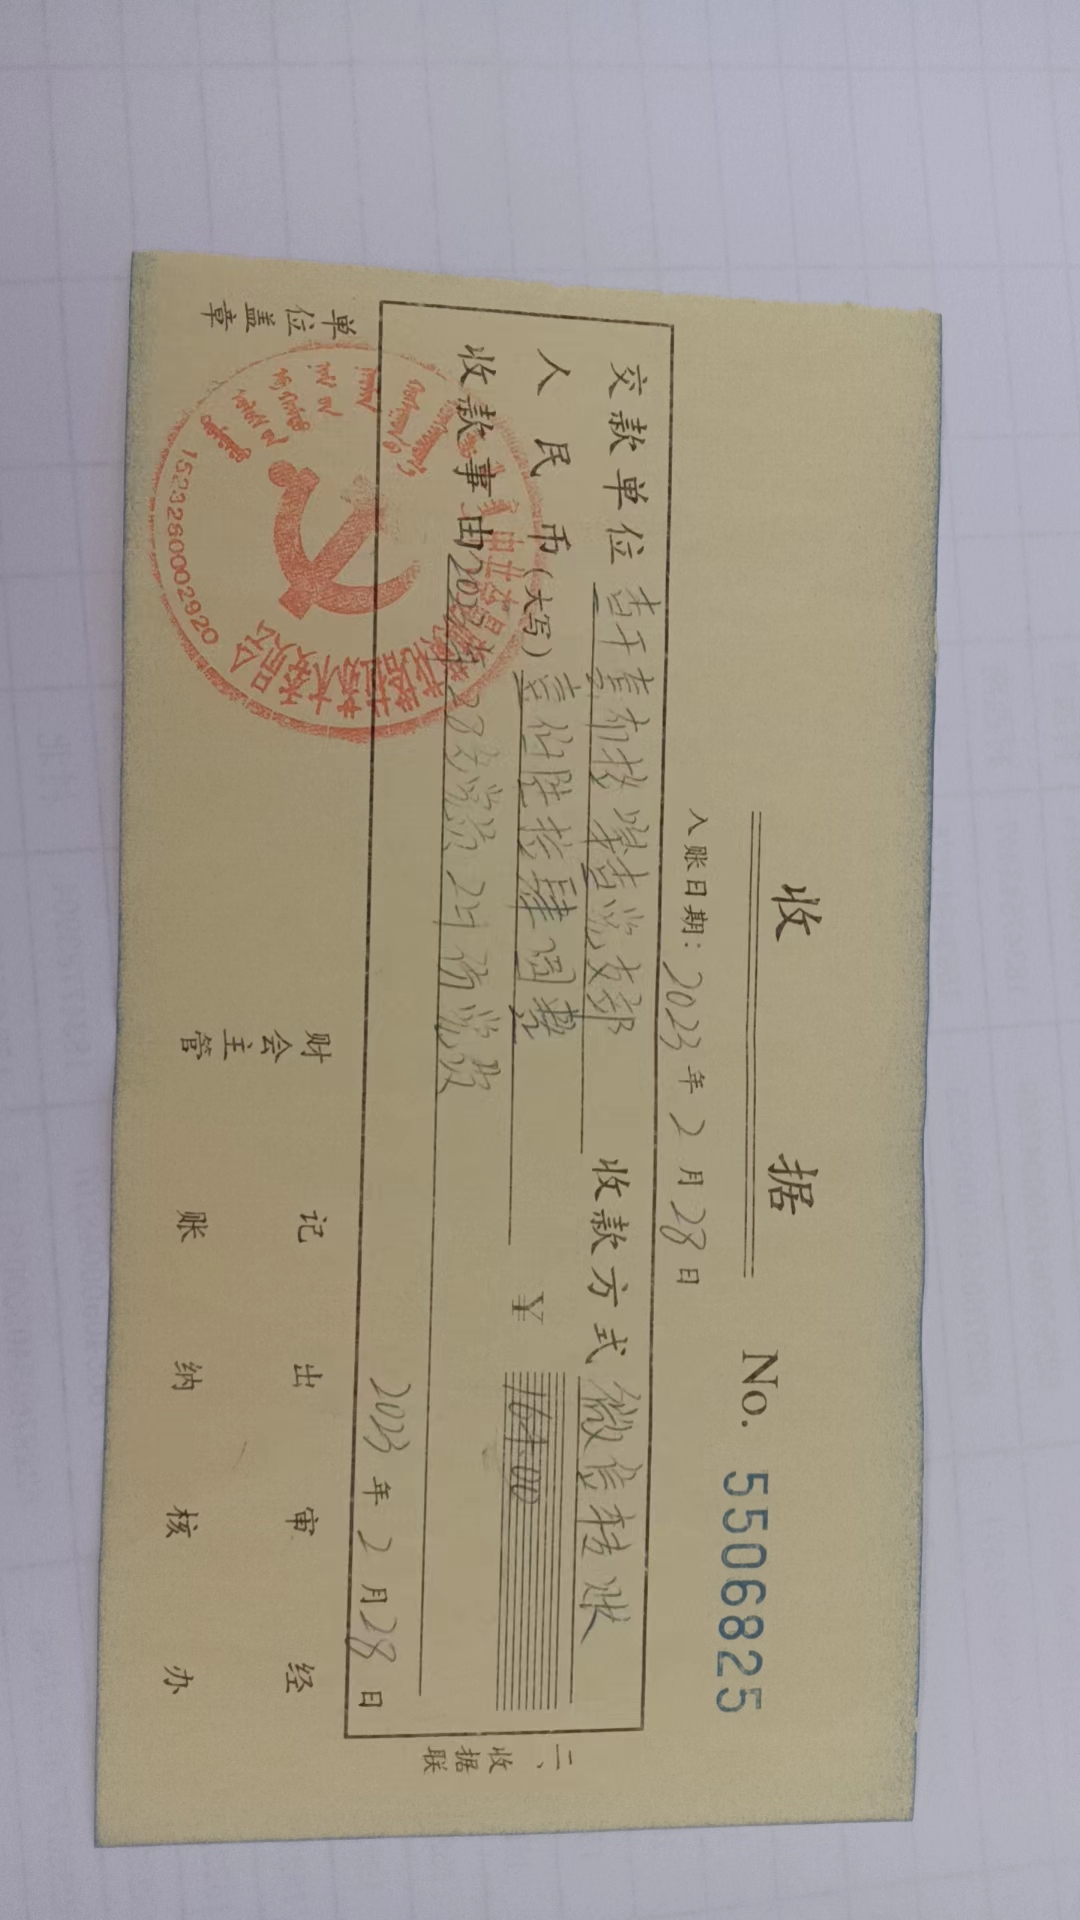 收 据
No. 5506825
入账日期: 2023 年 2 月 28 日
交款单位 党支部 收款方式 微信转账
人民币(大写) 壹佰陆拾肆圆整 ¥ 164.00
收款事由 2023年 2月份党费
2023 年 2 月 28 日
二、收据联
单位盖章 财会主管 记账 出纳 审核 经办
1523260002920